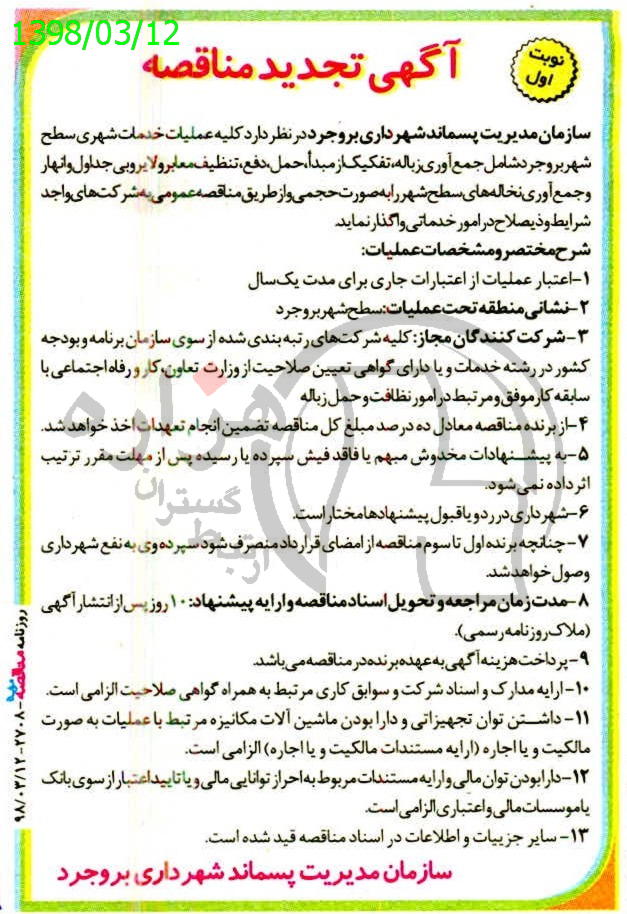 1398/03/12
نوبت
اول
آگهی تجدید مناقصه
سازمان مدیریت پسماند شهرداری بروجرد در نظر دارد کلیه عملیات خدمات شهری سطح
شهر بروجرد شامل جمع آوری زباله، تفکیک از مبدأ، حمل، دفع، تنظیف معابر و لایروبی جداول و انهار
و جمع آوری نخاله های سطح شهر را به صورت حجمی و از طریق مناقصه عمومی به شرکت های واجد
شرایط و ذیصلاح در امور خدماتی واگذار نماید.
شرح مختصر و مشخصات عملیات:
۱-اعتبار عملیات از اعتبارات جاری برای مدت یک سال
۲-نشانی منطقه تحت عملیات: سطح شهر بروجرد
۳-شرکت کنندگان مجاز: کلیه شرکت های رتبه بندی شده از سوی سازمان برنامه و بودجه
کشور در رشته خدمات و یا دارای گواهی تعیین صلاحیت از وزارت تعاون، کار و رفاه اجتماعی با
سابقه کار موفق و مرتبط در امور نظافت و حمل زباله
۴-از برنده مناقصه معادل ده درصد مبلغ کل مناقصه تضمین انجام تعهدات اخذ خواهد شد.
۵-به پیشنهادات مخدوش مبهم یا فاقد فیش سپرده یا رسیده پس از مهلت مقرر ترتیب
اثر داده نمی شود.
۶-شهرداری در رد و یا قبول پیشنهادها مختار است.
۷-چنانچه برنده اول تا سوم مناقصه از امضای قرارداد منصرف شود سپرده وی به نفع شهرداری
وصول خواهد شد.
۸-مدت زمان مراجعه و تحویل اسناد مناقصه و ارایه پیشنهاد: ۱۰ روز پس از انتشار آگهی
(ملاک روزنامه رسمی).
۹-پرداخت هزینه آگهی به عهده برنده در مناقصه می باشد.
۱۰-ارایه مدارک و اسناد شرکت و سوابق کاری مرتبط به همراه گواهی صلاحیت الزامی است.
۱۱-داشتن توان تجهیزاتی و دارا بودن ماشین آلات مکانیزه مرتبط با عملیات به صورت
مالکیت و یا اجاره (ارایه مستندات مالکیت و یا اجاره) الزامی است.
۱۲-دارا بودن توان مالی و ارایه مستندات مربوط به احراز توانایی مالی و یا تایید اعتبار از سوی بانک
یا موسسات مالی و اعتباری الزامی است.
۱۳-سایر جزییات و اطلاعات در اسناد مناقصه قید شده است.
سازمان مدیریت پسماند شهرداری بروجرد
روزنامه مناقصه -۲۷۰۸-۹۸/۰۳/۱۲
هزاره
گستران
ارتباط